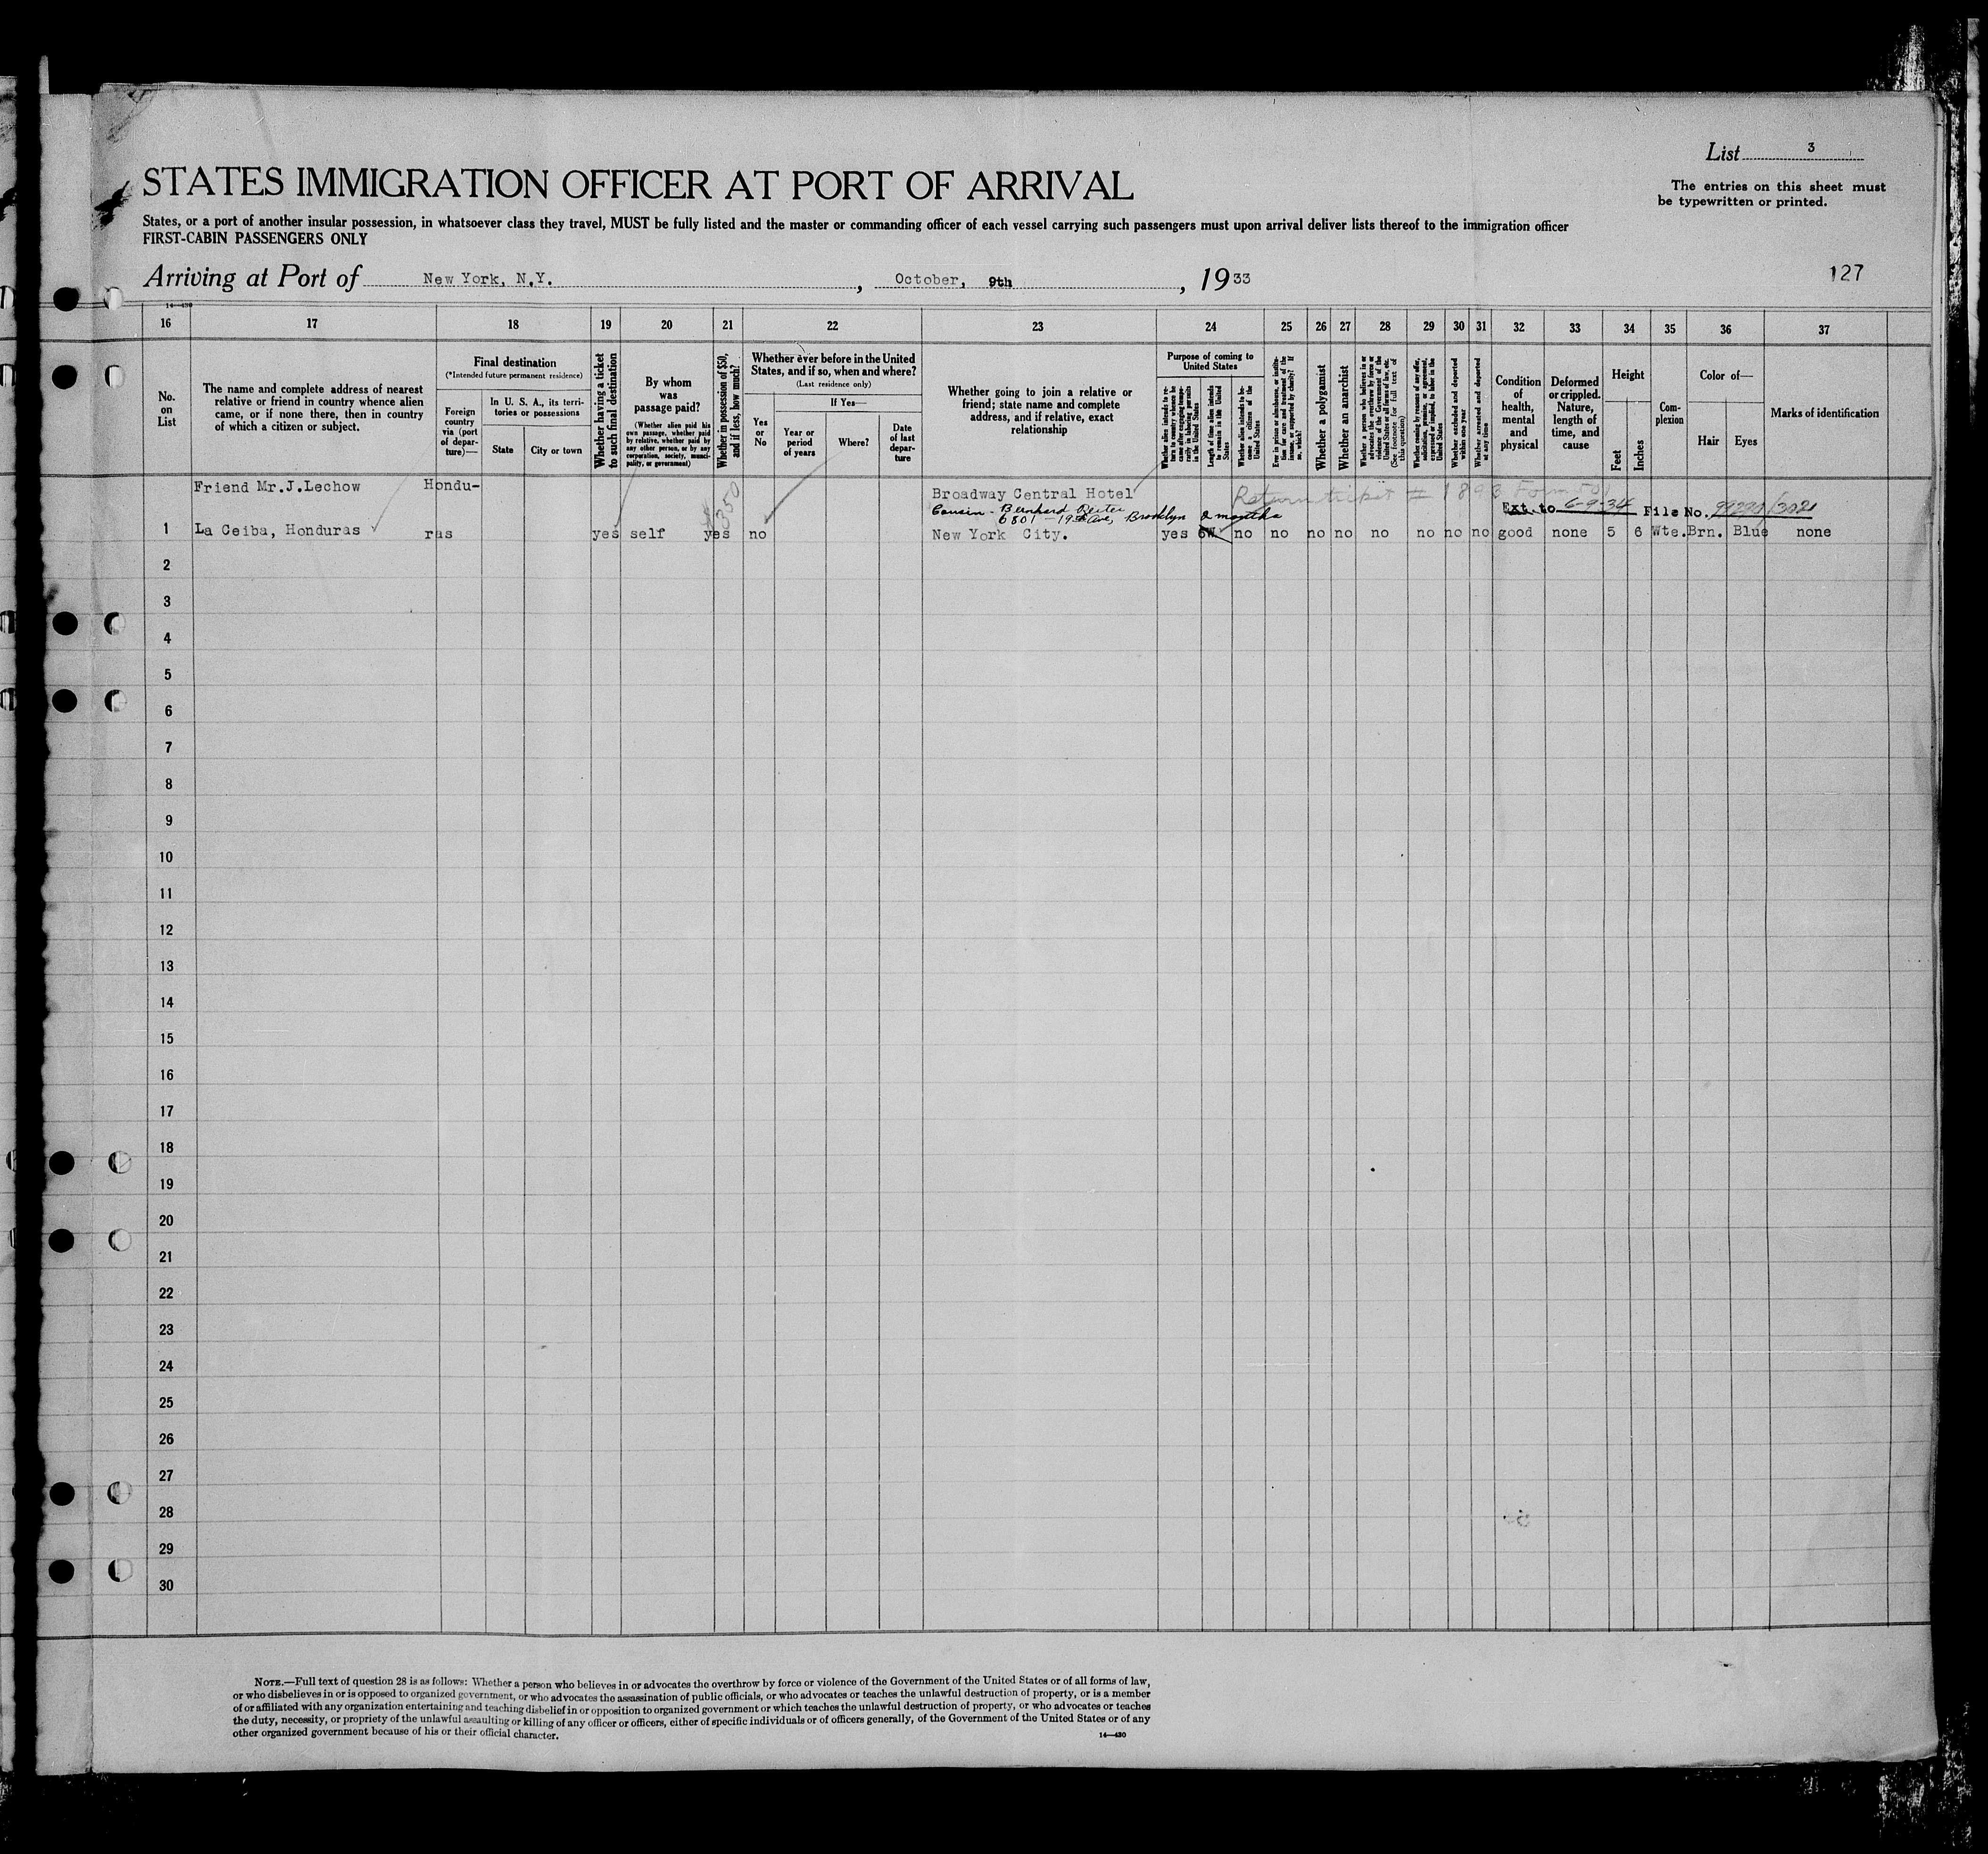 List 3
STATES IMMIGRATION OFFICER AT PORT OF ARRIVAL
The entries on this sheet must
be typewritten or printed.
States, or a port of another insular possession, in whatsoever class they travel, MUST be fully listed and the master or commanding officer of each vessel carrying such passengers must upon arrival deliver lists thereof to the immigration officer
FIRST-CABIN PASSENGERS ONLY
Arriving at Port of New York, N.Y., October, 9th, 1933
127
14—430
16 17 18 19 20 21 22 23 24 25 26 27 28 29 30 31 32 33 34 35 36 37
No.
on
List
The name and complete address of nearest
relative or friend in country whence alien
came, or if none there, then in country
of which a citizen or subject.
Final destination
(*Intended future permanent residence)
Foreign
country
via (port
of depar-
ture)—
In U. S. A., its terri-
tories or possessions
State
City or town
Whether having a ticket
to such final destination
By whom
was
passage paid?
(Whether alien paid his
own passage, whether paid
by relative, whether paid by
any other person, or by any
corporation, society, munici-
pality, or government)
Whether in possession of $50,
and if less, how much?
Whether ever before in the United
States, and if so, when and where?
(Last residence only)
Yes
or
No
If Yes—
Year or
period
of years
Where?
Date
of last
depar-
ture
Whether going to join a relative or
friend; state name and complete
address, and if relative, exact
relationship
Purpose of coming to
United States
Whether alien intends to re-
turn to country whence he
came after engaging tempo-
rarily in laboring pursuits
in the United States
Length of time alien intends
to remain in the United
States
Whether alien intends to be-
come a citizen of the
United States
Ever in prison or almshouse, or institu-
tion for care and treatment of the
insane, or supported by charity? If
so, which?
Whether a polygamist
Whether an anarchist
Whether a person who believes in or
advocates the overthrow by force or
violence of the Government of the
United States or all forms of law, etc.
(See footnote for full text of
this question)
Whether coming by reason of any offer,
solicitation, promise, or agreement,
expressed or implied, to labor in the
United States
Whether excluded and deported
within one year
Whether arrested and deported
at any time
Condition
of
health,
mental
and
physical
Deformed
or crippled.
Nature,
length of
time, and
cause
Height
Feet
Inches
Com-
plexion
Color of—
Hair
Eyes
Marks of identification
Friend Mr.J.Lechow Hondu- $350 Broadway Central Hotel Return ticket # 1893 Form 50
Cousin - Bernhard Reiter Ext. to 6-9-34 File No. 99290/3021
6801 - 19th Ave, Brooklyn 2 months
1 La Ceiba, Honduras ras yes self yes no New York City. yes 6W no no no no no no no no good none 5 6 Wte. Brn. Blue none
2
3
4
5
6
7
8
9
10
11
12
13
14
15
16
17
18
19
20
21
22
23
24
25
26
27
28
29
30
NOTE.—Full text of question 28 is as follows: Whether a person who believes in or advocates the overthrow by force or violence of the Government of the United States or of all forms of law,
or who disbelieves in or is opposed to organized government, or who advocates the assassination of public officials, or who advocates or teaches the unlawful destruction of property, or is a member
of or affiliated with any organization entertaining and teaching disbelief in or opposition to organized government or which teaches the unlawful destruction of property, or who advocates or teaches
the duty, necessity, or propriety of the unlawful assaulting or killing of any officer or officers, either of specific individuals or of officers generally, of the Government of the United States or of any
other organized government because of his or their official character.
14—430